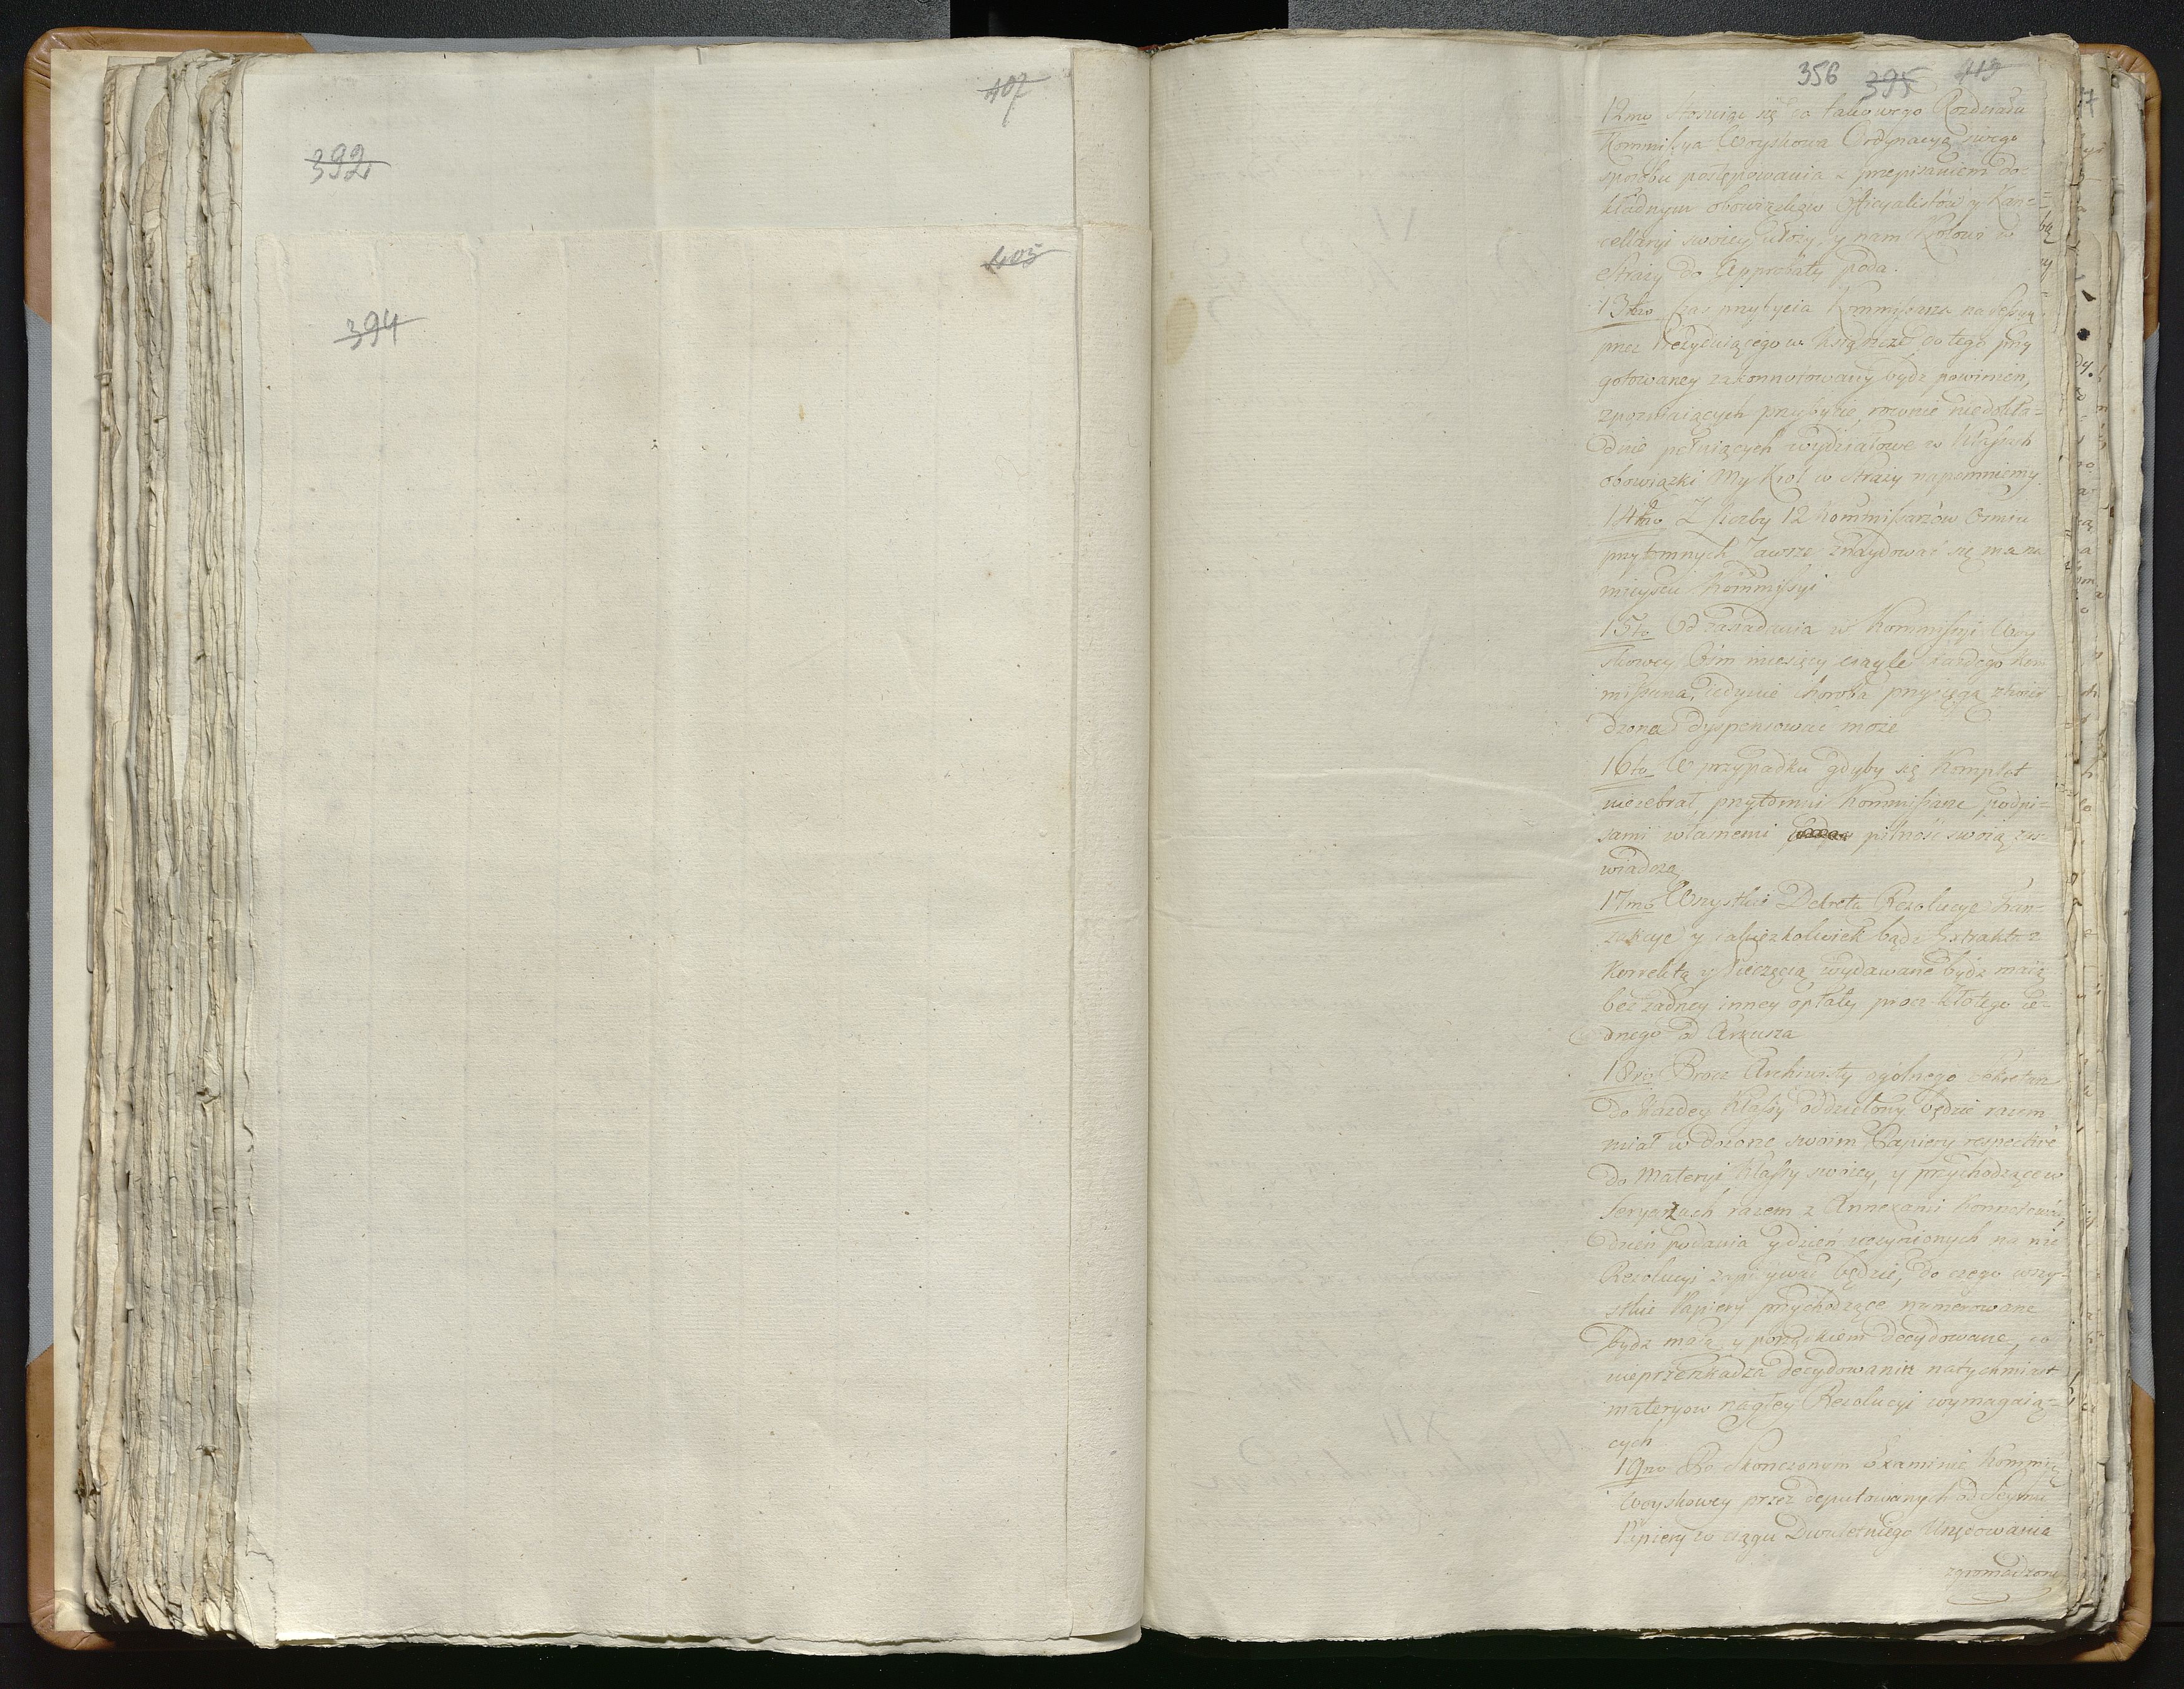 407
392
403
394
356 395 413
12mo stosuiąc się do takowego Rozdziału
Kommissya Woyskowa Ordynacyą swego
sposobu postępowania z przepisaniem do=
kładnym obowiązków Officyalistów y Kan=
cellaryi swoiey ułoży, y nam Królowi w
Straży do Approbaty poda.
13tio czas przybycia Kommissarza na Sessyą
przez Prezyduiącego w Książeczce do tego przy
gotowaney zakonnotowany bydź powinien,
zpozniaiących przybycie, rownie niedokła=
dnie pełniących wydziałowe w Klassach
obowiązki My Krol w Straży napomniemy.
14to Z liczby 12 Kommissarzów Osmiu
przytomnych zawsze znaydować się ma na
mieyscu Kommissyi
15to Od zasiadania w Kommissyi Woy
skowey Osm miesięcy każdego Kom
missarza, iedynie choroba przysięgą stwier
dzona dyspensować może
16to W przypadku gdyby się Komplet
niezebrał, przytomni Kommissarze podpi=
sami własnemi pilność swoią zas=
wiadczą
17mo Wszystkie Dekreta Rezolucye Tran=
zakcye y iakieżkolwiek bądź Extrakta z
Korrektą y Pieczęcią wydawane bydź maią
bez żadney inney opłaty procz Złotego ie=
dnego od Arkusza
18vo Procz Archiwisty ogólnego Sekretarz
do każdey Klassy oddzielony będzie razem
miał w dozorze swoim Papiery respective
do Materyi Klassy swoiey, y przychodzące w
Seryarzach razem z Annexami Konnotować,
dzień podania y dzień uczynionych na nie
Rezolucyi zapisywać będzie, do czego wszy=
stkie Papiery przychodzące numerowane
bydź maią y porządkiem decydowane, co
nieprzeszkadza decydowaniu natychmiast
materyow nagłey Rezolucyi wymagaią=
cych
19no Po skończonym Examinie Kommis
Woyskowey przez deputowanych od Seymu
Papiery w ciągu Dwuletniego Urzędowania
zgromadzone